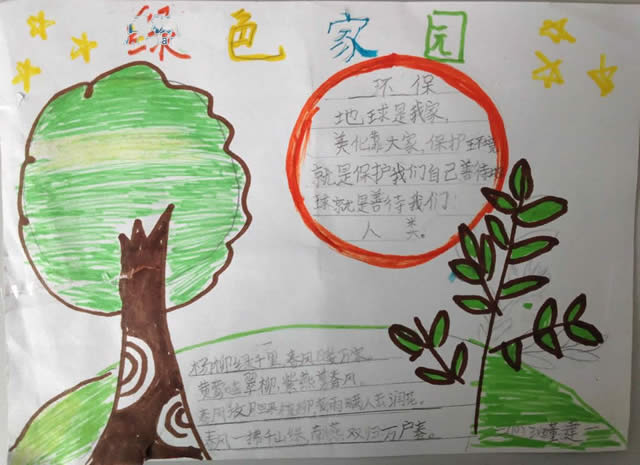 绿色家园
环保
地球是我家,
美化靠大家,保护环境
就是保护我们自己善待地
球就是善待我们
人类。
杨柳绿千里春风暖万家
黄莺鸣翠柳,紫燕剪春风。
春风 桃柳 雨 人 润花。
春风一拂千山绿,南燕双归万户春。